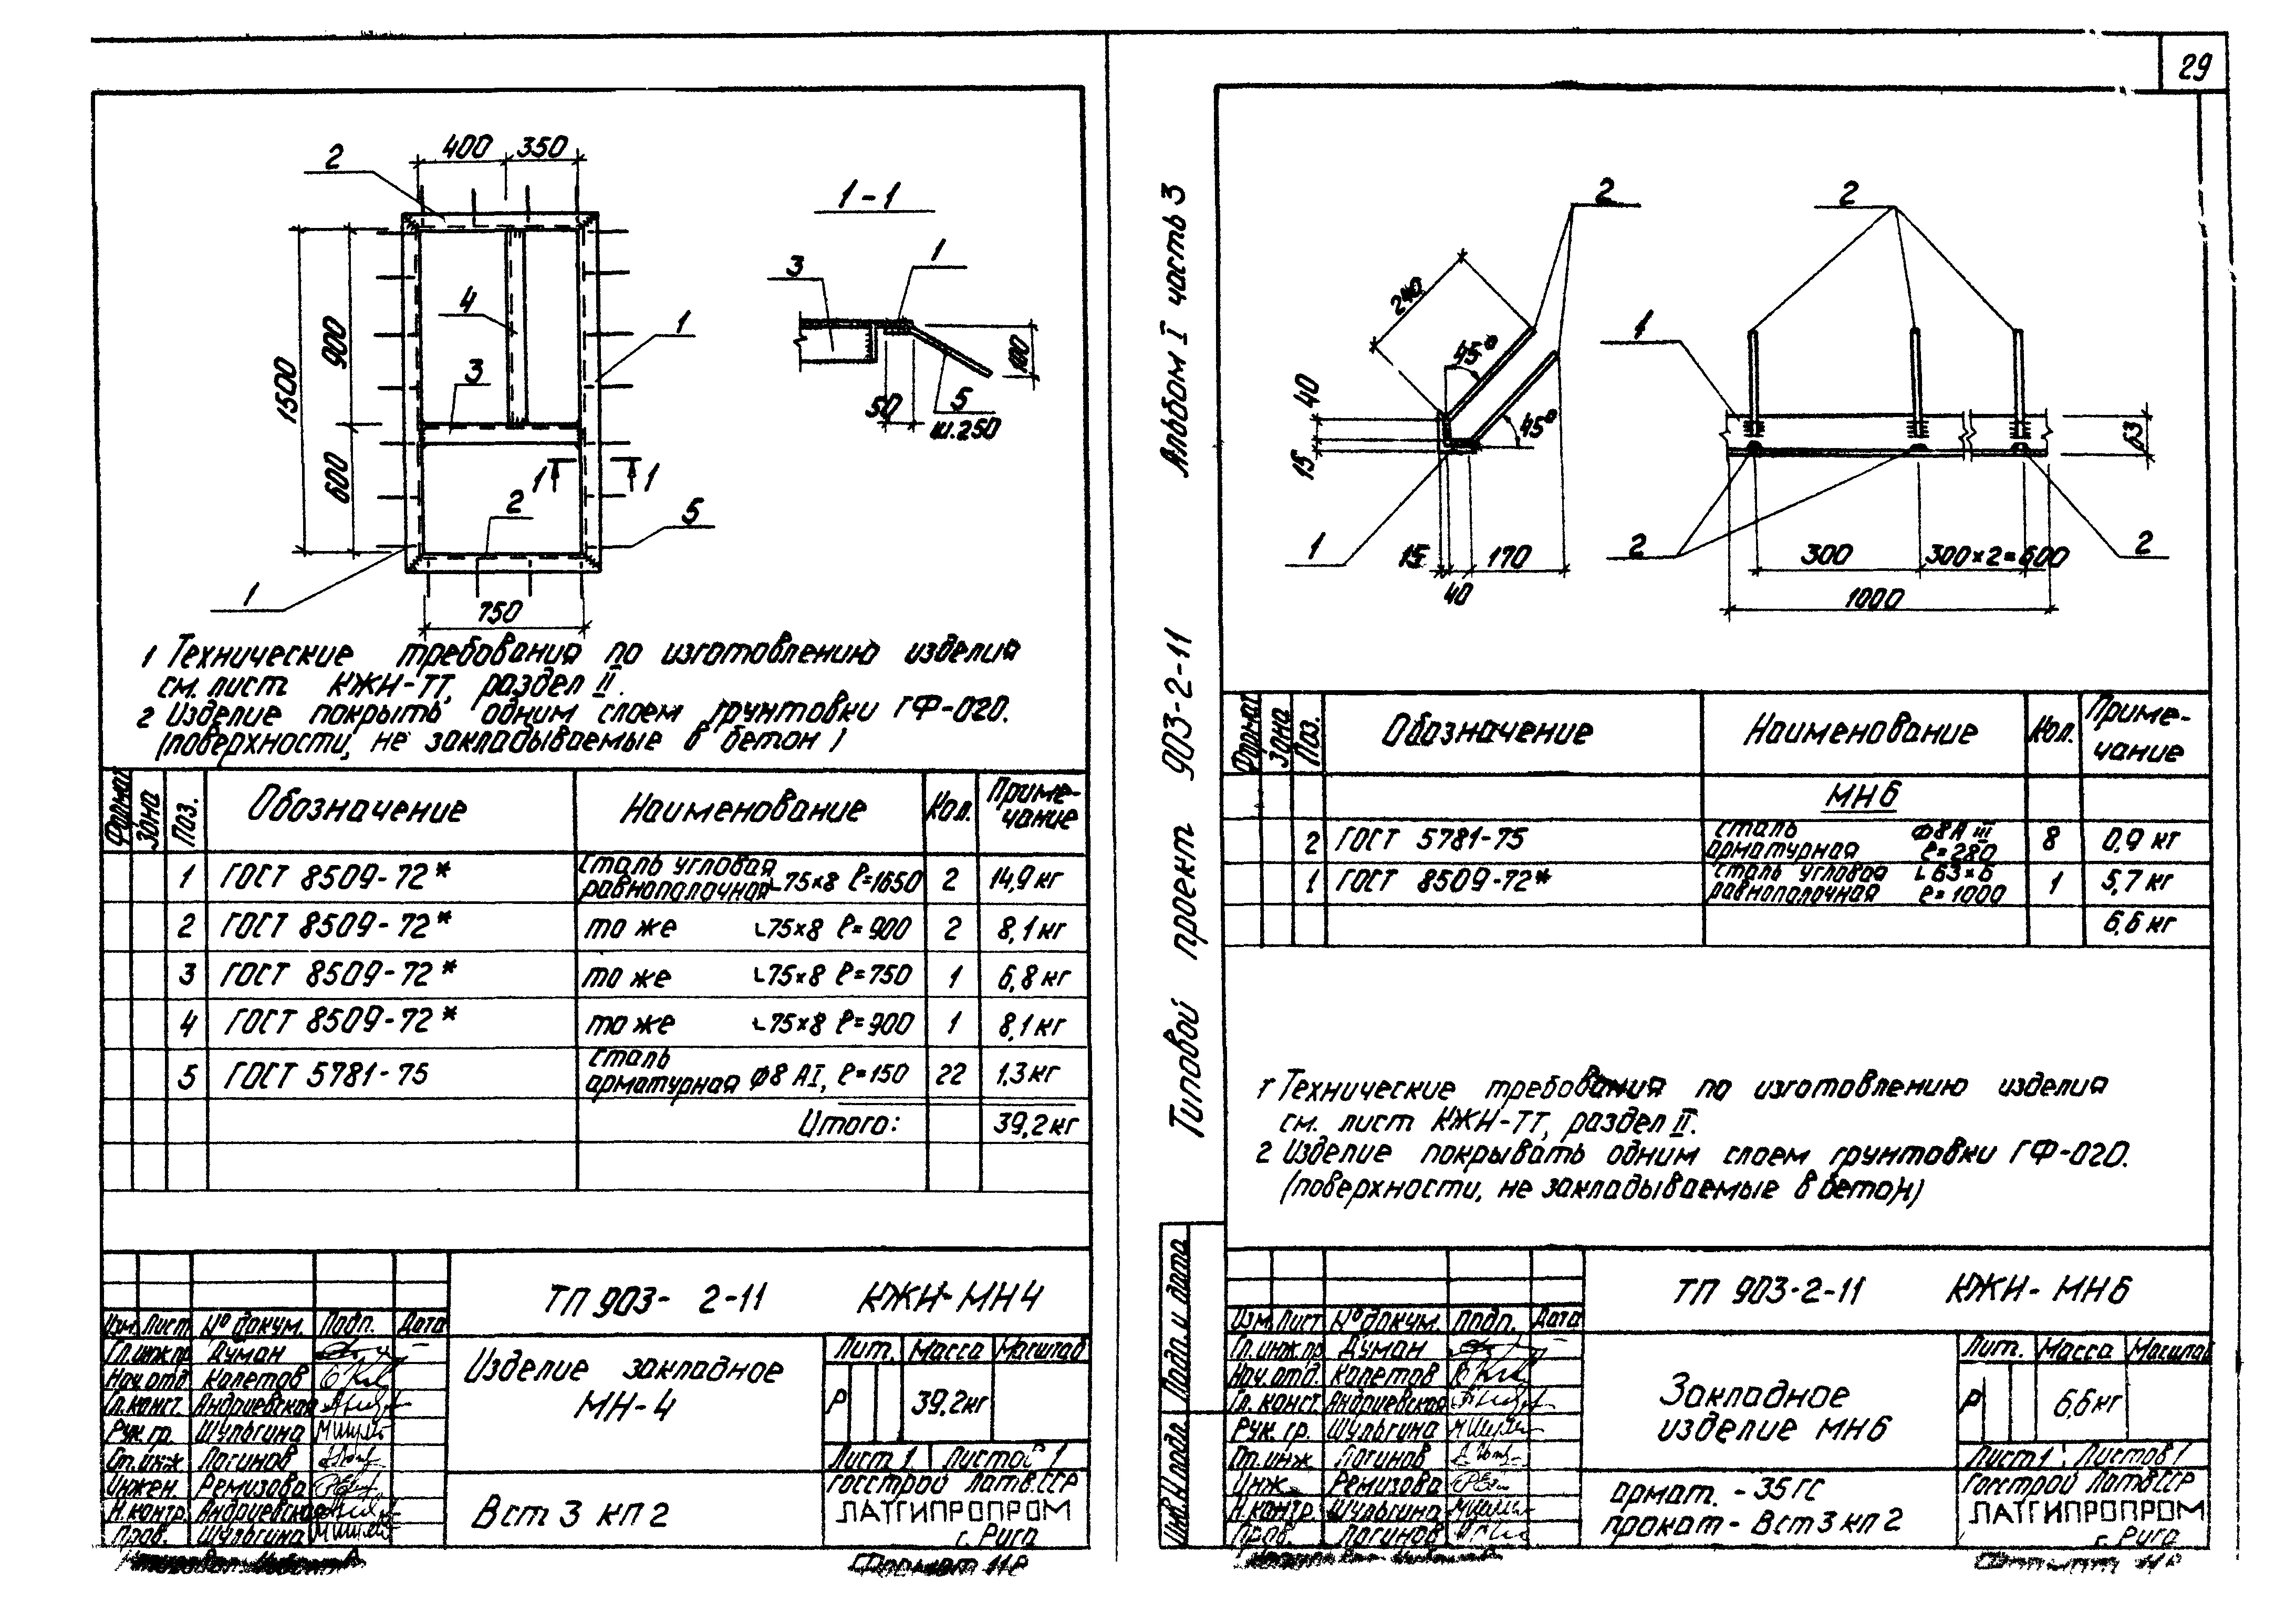 29
400 350
2
1-1
1
3
4
1
1500
900
3
600
50
5
100
ш.250
1 1
2
5
1
750
1 Технические требования по изготовлению изделия
см. лист КЖИ-ТТ, раздел II.
2 Изделие покрыть одним слоем грунтовки ГФ-020.
(поверхности, не закладываемые в бетон)
Формат Зона Поз. Обозначение Наименование Кол. Приме-
чание
1 ГОСТ 8509-72* Сталь угловая
равнополочная ∟75×8 ℓ=1650 2 14,9 кг
2 ГОСТ 8509-72* то же ∟75×8 ℓ=900 2 8,1 кг
3 ГОСТ 8509-72* то же ∟75×8 ℓ=750 1 6,8 кг
4 ГОСТ 8509-72* то же ∟75×8 ℓ=900 1 8,1 кг
5 ГОСТ 5781-75 сталь
арматурная ф8 АI, ℓ=150 22 1,3 кг
Итого: 39,2 кг
ТП 903-2-11 КЖИ-МН4
Изм. Лист № докум. Подп. Дата
Гл.инж.пр. Думан
Нач.отд. Калетов
Гл.конст. Андриевская
Рук.гр. Шульгина
Ст.инж. Логинов
Инжен. Ремизова
Н.контр. Андриевская
Пров. Шульгина
Изделие закладное
МН-4
Лит. Масса Масштаб
Р 39,2кг
Лист 1 Листов 1
Вст 3 кп 2
Госстрой Латв.ССР
ЛАТГИПРОПРОМ
г. Рига
Формат 11
Альбом I часть 3
Типовой проект 903-2-11
Инв.N подл. Подп. и дата
2
2
240
45°
1
40
15
45°
63
1
15 40 170
2
2
300 300×2=600
1000
Формат Зона Поз. Обозначение Наименование Кол. Приме-
чание
МН6
2 ГОСТ 5781-75 сталь
арматурная ф8А III
ℓ=280 8 0,9 кг
1 ГОСТ 8509-72* сталь угловая
равнополочная ∟63×6
ℓ=1000 1 5,7 кг
6,6 кг
1 Технические требования по изготовлению изделия
см. лист КЖИ-ТТ, раздел II.
2 Изделие покрывать одним слоем грунтовки ГФ-020.
(поверхности, не закладываемые в бетон)
ТП 903-2-11 КЖИ-МН6
Изм. Лист № докум. Подп. Дата
Гл.инж.пр. Думан
Нач.отд. Калетов
Гл. конст. Андриевская
Рук. гр. Шульгина
Ст.инж. Логинов
Инж. Ремизова
Н.контр. Шульгина
Пров. Логинов
Закладное
изделие МН6
Лит. Масса Масштаб
Р 6,6 кг
Лист 1 Листов 1
армат. - 35 ГС
прокат - Вст 3 кп 2
Госстрой Латв.ССР
ЛАТГИПРОПРОМ
г. Рига